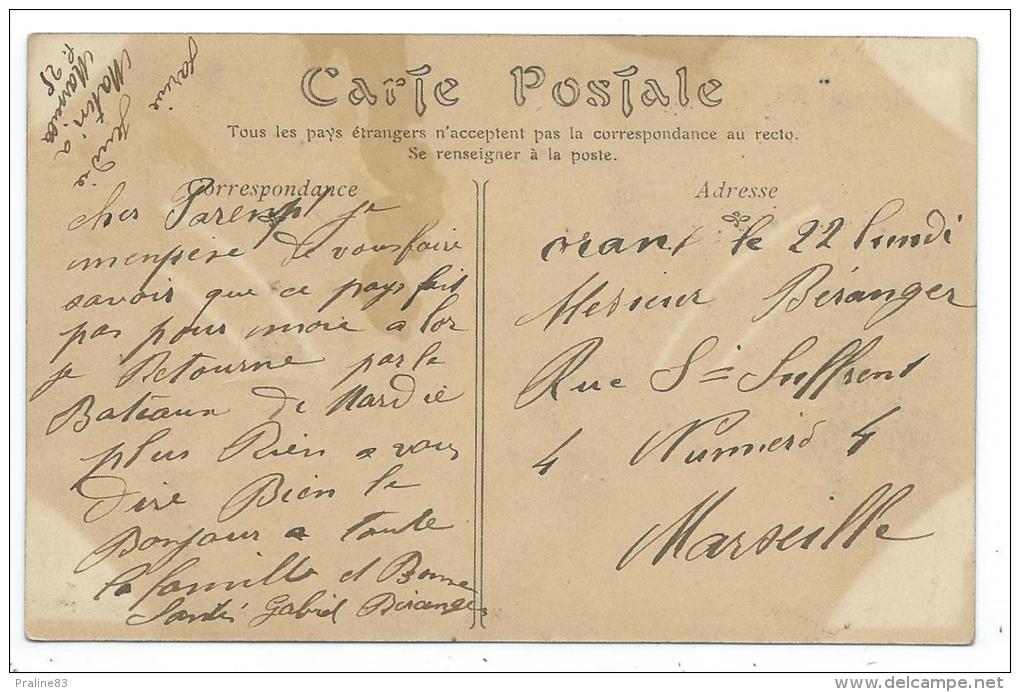 Carte Postale
Tous les pays étrangers n'acceptent pas la correspondance au recto.
Se renseigner à la poste.
Correspondance
cher Parent je
menpère de vous faire
savoir que ce pays fait
pas pour moie a lor
je Retourne par le
Bateaux de Mardie
plus Rien a vous
dire Bien le
Bonjour a toute
la famille et Bonne
Santés Gabriel Béranger
Jeudie
Matin a
Marseille
le 25
Adresse
oran le 22 lundi
Mesieur Béranger
Rue St Suffrent
4 Numero 4
Marseille
Praline83
delcampe.net